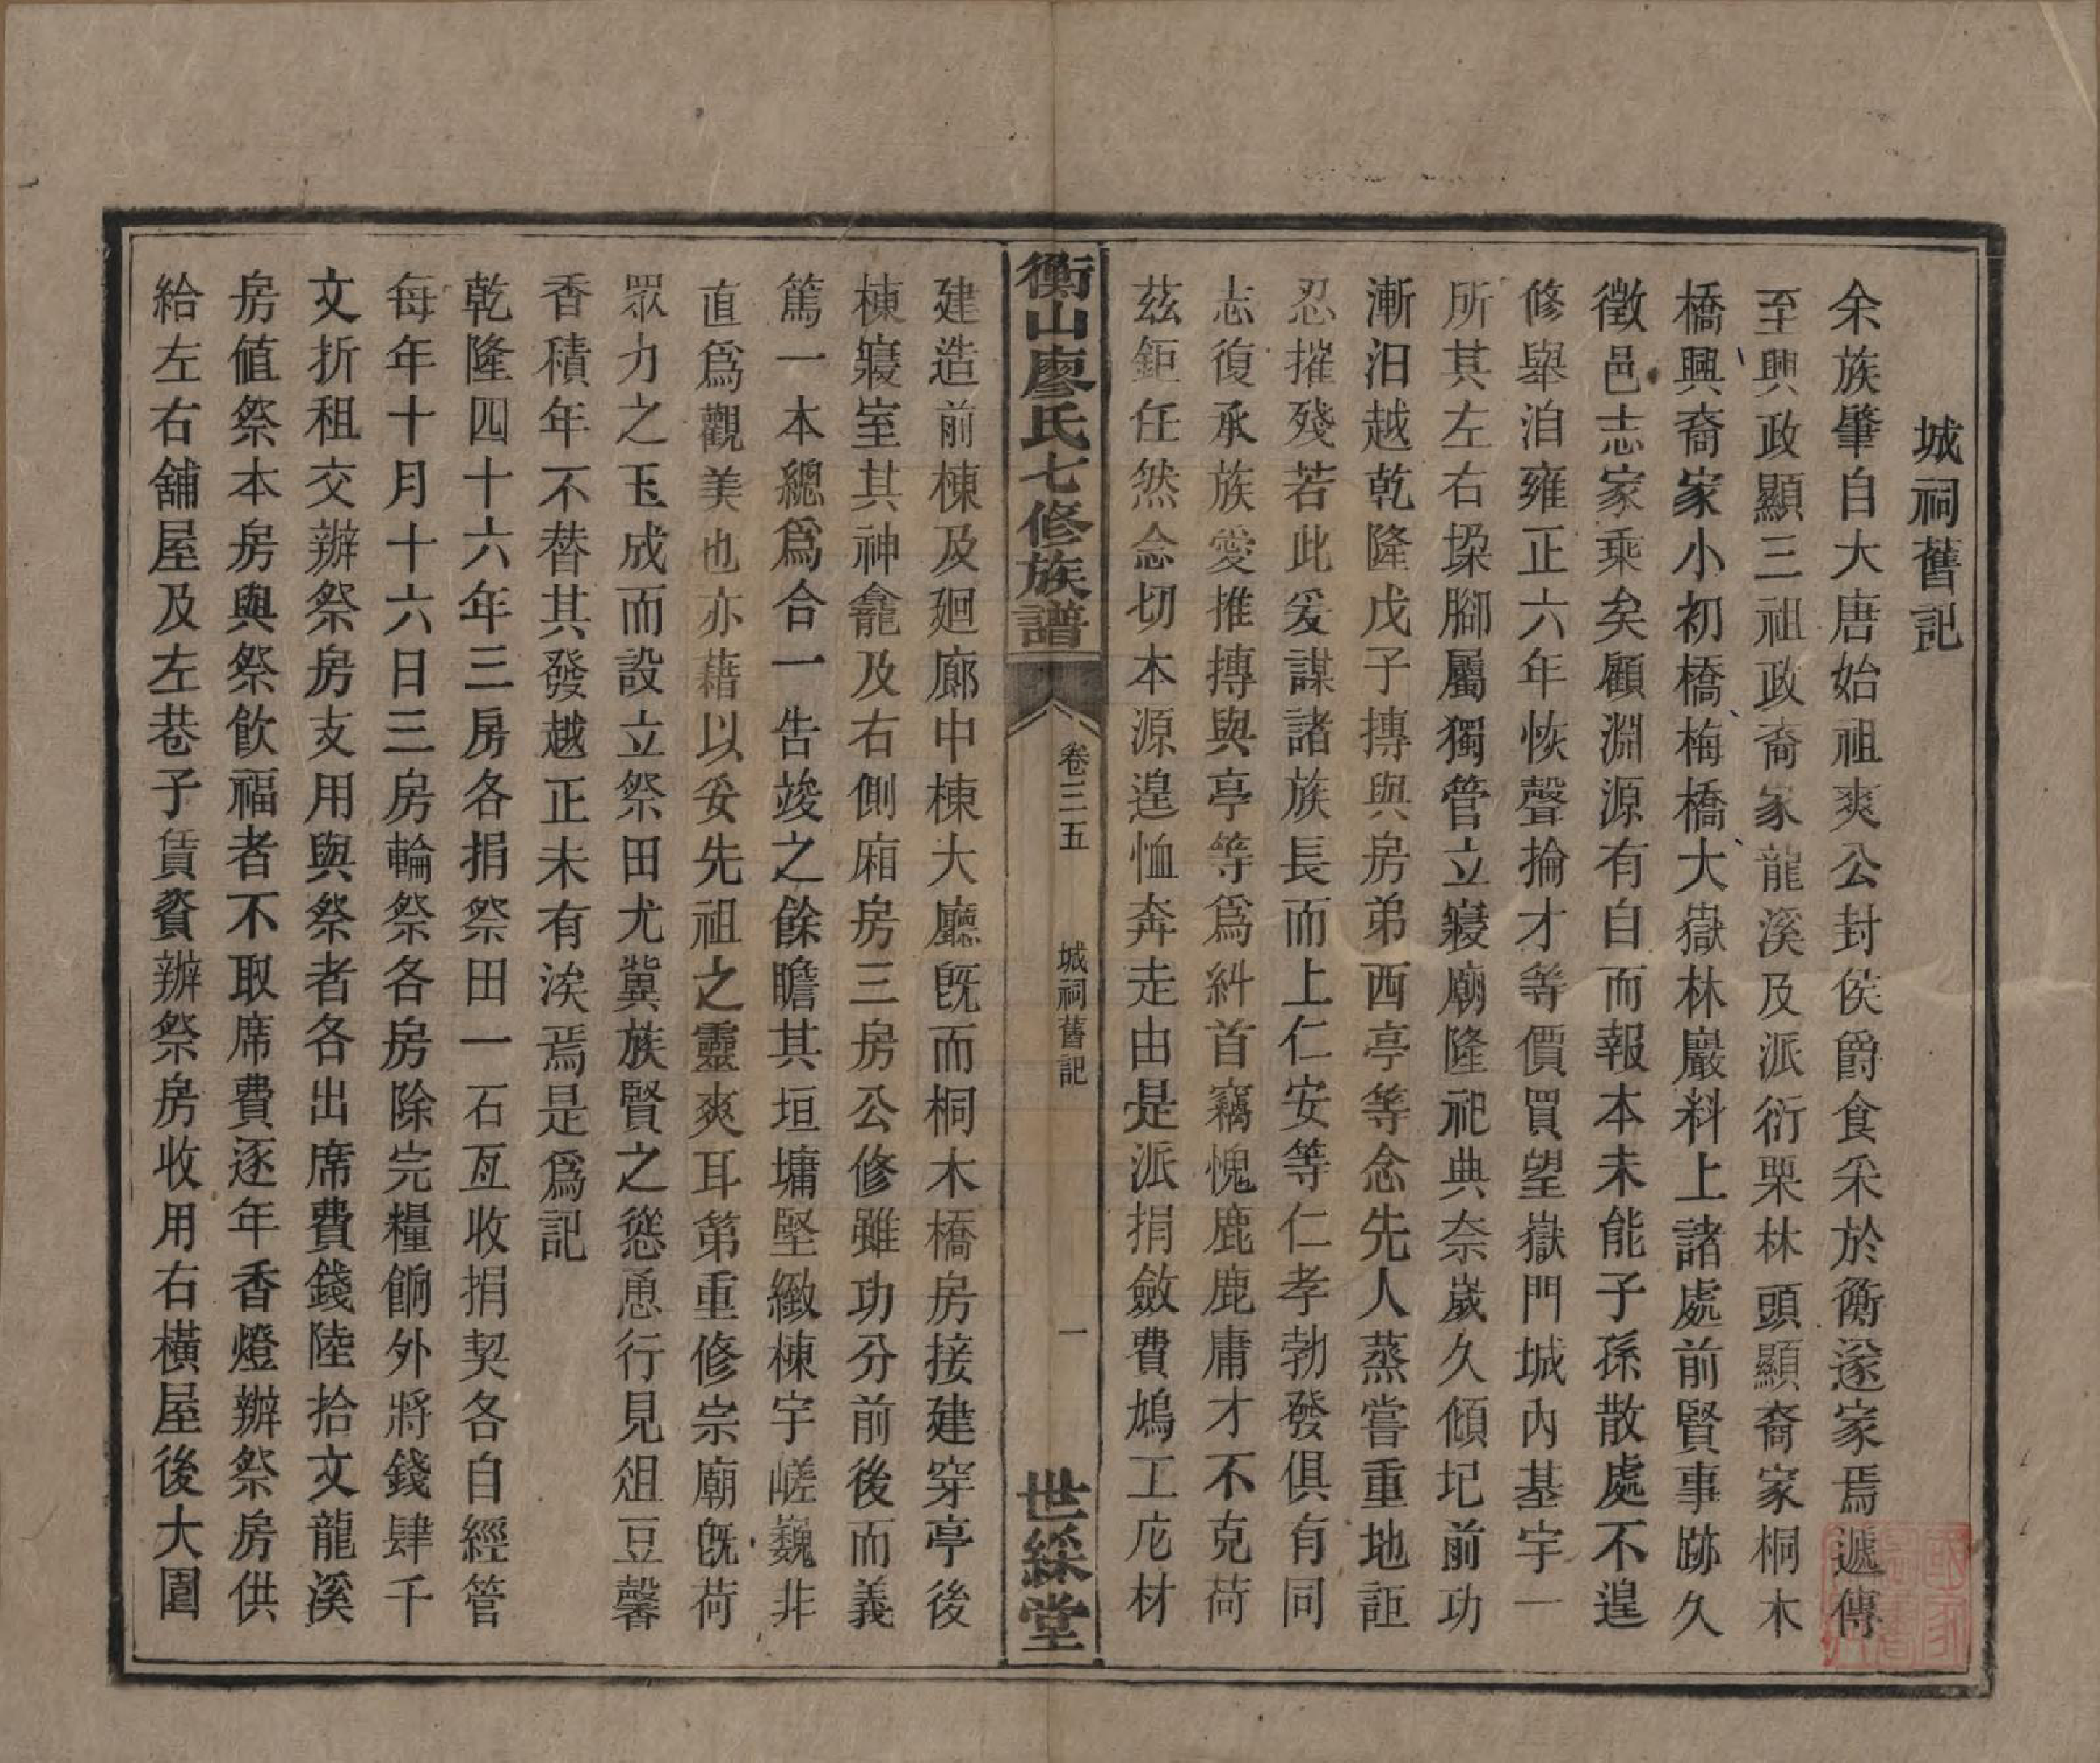 城祠舊記
余族肇自大唐始祖爽公封侯爵食采於衡遂家焉遞傳
至興政顯三祖政裔家龍溪及派衍栗林頭顯裔家桐木
橋興裔家小初橋梅橋大嶽林巖料上諸處前賢事跡久
徵邑志家乘矣顧淵源有自而報本未能子孫散處不遑
修舉洎雍正六年恢聲掄才等價買望嶽門城內基宇一
所其左右垜腳屬獨管立寢廟隆祀典奈歲久傾圮前功
漸汨越乾隆戊子摶與房弟西亭等念先人蒸嘗重地詎
忍摧殘若此爰謀諸族長而上仁安等仁孝勃發俱有同
志復承族愛推摶與亭等爲糾首竊愧鹿鹿庸才不克荷
茲鉅任然念切本源遑恤奔走由是派捐斂費鳩工庀材
衡山廖氏七修族譜
卷三五
城祠舊記
一
世綵堂
建造前棟及廻廊中棟大廳旣而桐木橋房接建穿亭後
棟寢室其神龕及右側廂房三房公修雖功分前後而義
篤一本總爲合一告竣之餘瞻其垣墉堅緻棟宇嵯巍非
直爲觀美也亦藉以妥先祖之靈爽耳第重修宗廟旣荷
眾力之玉成而設立祭田尤冀族賢之慫恿行見俎豆馨
香積年不替其發越正未有涘焉是爲記
乾隆四十六年三房各捐祭田一石互收捐契各自經管
每年十月十六日三房輪祭各房除完糧餉外將錢肆千
文折租交辦祭房支用與祭者各出席費錢陸拾文龍溪
房值祭本房與祭飮福者不取席費逐年香燈辦祭房供
給左右舖屋及左巷子賃賫辦祭房收用右橫屋後大園